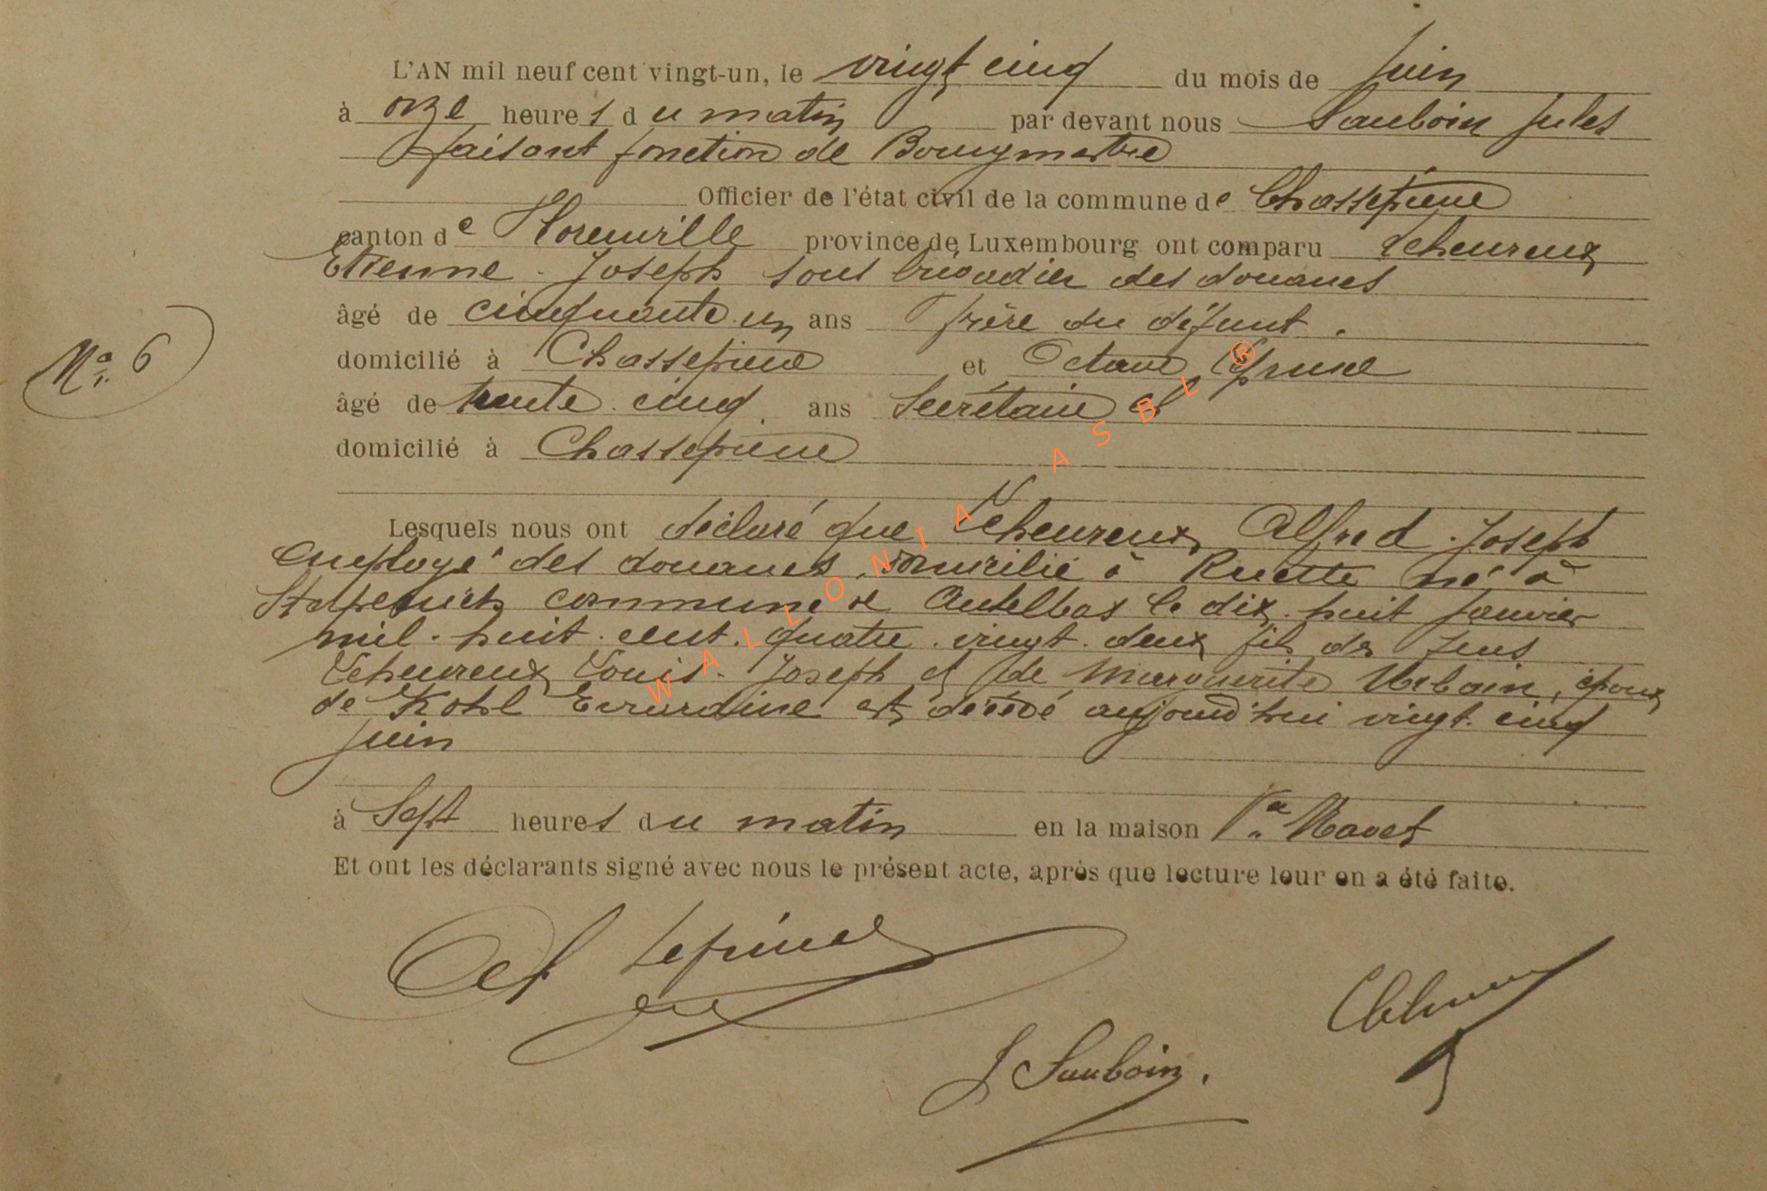 L'AN mil neuf cent vingt-un, le vingt cinq du mois de juin
à onze heures du matin par devant nous Sauboin Jules
faisant fonction de Bourgmestre
Officier de l'état civil de la commune de Chassepierre
canton de Florenville province de Luxembourg ont comparu Leheureux
Etienne - Joseph sous brigadier des douanes
âgé de cinquante un ans frère du défunt.
domicilié à Chassepierre et Octave
âgé de trente cinq ans Secrétaire Cl
domicilié à Chassepierre
Nº 6
Lesquels nous ont déclaré que Leheureux Alfred - Joseph
employé des douanes, domicilié à Ruette né à
commune de Autelbas le dix huit janvier
mil - huit - cent - quatre - vingt - deux fils de feus
Leheureux Louis - Joseph et de Marguerite Urbain, époux
de Kohl est décédé aujourd'hui vingt cinq
juin
à Sept heures du matin en la maison Navet
Et ont les déclarants signé avec nous le présent acte, après que lecture leur en a été faite.
J Sauboin.
WALLONIA ASBL ®